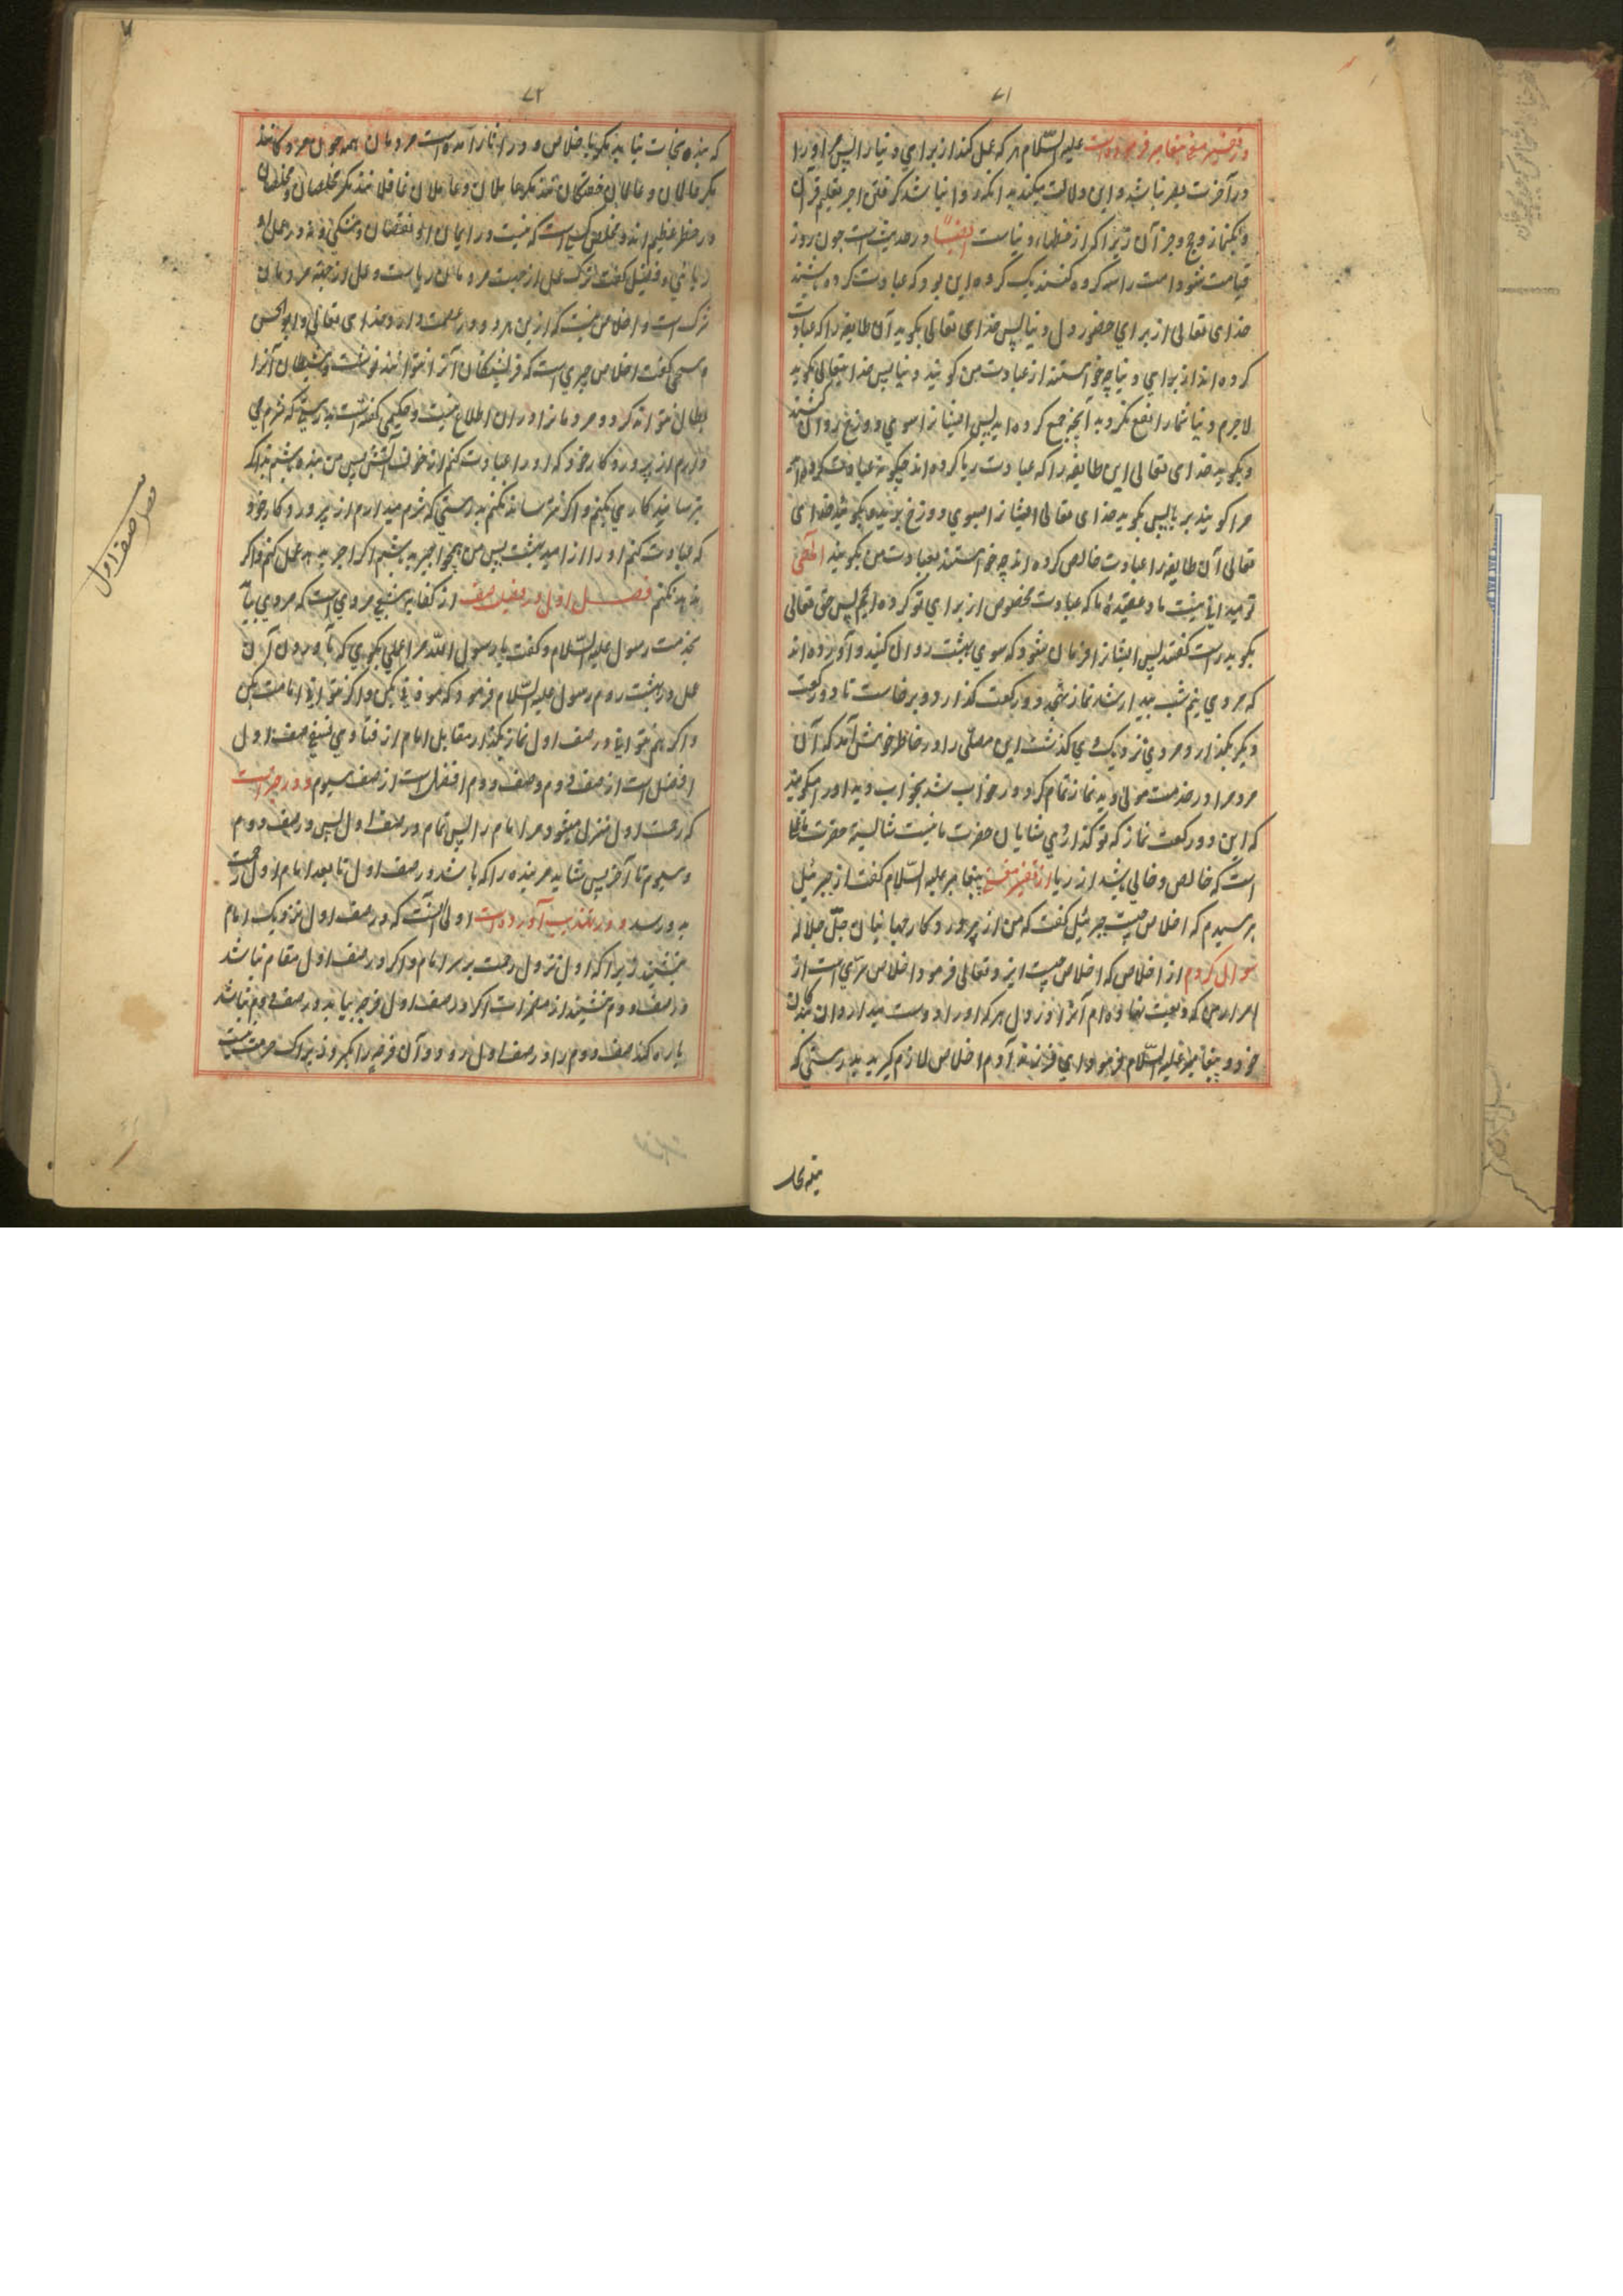 ۷۱
در تفسیر مغنی پیغامبر فرموده است علیه السّلام هر که عمل کند از برای دنیا را پس مر او را
در آخرت بهره نباشد و این دلالت میکند بدانکه روا نباشد گرفتن اجر بتعلیم قرآن
و بنماز و حج و جز آن زیرا که از دنیاست ایضاً در حدیث است چون روز
قیامت شود امت را سه گروه کنند یک گروه این بود که عبادت کرده باشند
خدای تعالی از برای حضور دل و دنیا پس خدای تعالی بگوید آن طایفه را که عبادت
کرده اند از برای دنیا چه خواستند از عبادت من گویند دنیا پس خدایتعالی بگوید
لاجرم دنیا شما را نفع نکرد به آنچه جمع کرده اید پس ایشانرا سوی دوزخ روان کنند
و بگوید خدای تعالی این طایفه را که عبادت ریا کرده اند چگونه عبادت کرده اید
مرا گویند بریا پس بگوید خدای تعالی ایشانرا سوی دوزخ برید و بگوید خدای
تعالی آن طایفه را عبادت خالص کرده اند چه خواستند بعبادت من بگویند الهی
تو میدانی نیت ما و عقیدهٔ ما که عبادت مخصوص از برای تو کرده ایم پس حق تعالی
بگوید راست گفتند پس ایشانرا فرمان شود که سوی بهشت روان کنید و آورده اند
که مردی نیم شب بیدار شد نماز تهجد دو رکعت گذارد و برخاست تا دو رکعت
دیگر بگذارد مردی نزدیک وی گذشت این مصلی را در خاطر خوش آمد که آن
مرد مرا در خدمت مولی دید نماز تمام کرد و در خواب شد بخواب دید او را میگویند
که این دو رکعت نماز که تو گذاردی شایان حضرت ما نیست شایسته حضرت ما نماز
است که خالص و خالی باشد از ریا از تفسیر مغنی پیغامبر علیه السّلام گفت از جبرئیل
پرسیدم که اخلاص چیست جبرئیل گفت که من از پروردکار جهانیان جلّ جلاله
سوال کردم از اخلاص که اخلاص چیست ایزد تعالی فرمود اخلاص سرّی است از
اسرار من که ودیعت نهاده ام آنرا در دل هر که او را دوست میدارم از بندگان
خود و پیغامبر علیه السّلام فرمود ای فرزند آدم اخلاص لازم گیرید بدرستی که
۷۲
که بنده نجات نیابد مگر باخلاص و در آثار آمده است مردمان همه چون مردگانند
مگر عالمان و عالمان خفتگانند مگر عاملان و عاملان غافلانند مگر مخلصان و مخلصان
در خطر عظیم اند و مخلص کسی است که نیست در ایمان او نقصان و شکی و نه در عمل او
ریائی و فضیل گفت ترک عمل از جهت مردمان ریاست و عمل از جهة مردمان
شرک است و اخلاص نیست که ازین هر دو ورا عصمت دارد خدای تعالی و ابوالحسن
گفت اخلاص چیزی است که فریشتگان آنرا نتوانند نوشت و شیطان آنرا
بطال نتواند کرد و مردمانرا در آن اطلاع نیست و حکیمی گفته است بدرستی که شرم می
دارم از پروردکار خود که او را عبادت کنم از خوف آتش پس من بنده باشم بد اگر
بترسانند کاری بکنم و اگر نترسانند نکنم بدرستی که شرم میدارم از پروردکار خود
که عبادت کنم او را از امید بهشت پس من همچو اجیر بد باشم اگر اجر بدهند عمل کنم و اگر
ندهند نکنم فصل اول در فضیلت صف از کفایه شعبی مروی است که مردی بیامد
بخدمت رسول علیه السّلام و گفت یا رسول الله مرا عملی بگوی که بآوردن آن
عمل در بهشت روم رسول علیه السّلام فرمود که موذنی بکن و اگر نتوانی امامت بکن
و اگر هم نتوانی در صف اول نماز بگذار مقابل امام از فتاوی نسفی صف اول
افضل است از صف دوم و صف دوم افضل است از صف سیوم و در خبر است
که رحمت اول منزل میشود مر امام را پس تمام در صف اول پس در صف دوم
و سیوم تا آخر پس شاید مر بنده را که باشد در صف اول تا بعد امام اول رحمت
بدو رسد و در تهذیب آورده است اولی آنست که در صف اول نزدیک امام
بنشیند زیرا که اول نزول رحمت بر سر امام و اگر در صف اول مقام نباشد
در صف دوم بنشیند از مضمرات اگر در صف اول فرجه بیابد و در صف دوم نباشد
پاره کند صف دوم را و در صف اول رود و آن فرجه را بگیرد زیرا که حرمت نیست
صف اول